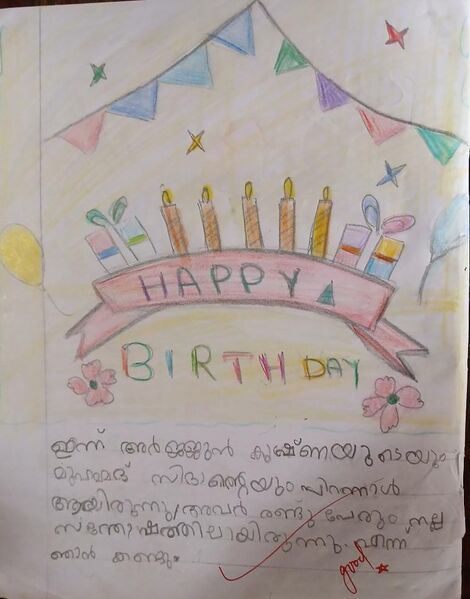 HAPPY
BIRTHDAY
ഇന്ന് അർജ്ജുൻ കൃഷ്ണയുടെയും
മുഹമ്മദ് സിദാന്റെയും പിറന്നാൾ
ആയിരുന്നു അവർ രണ്ടു പേരും നല്ല
സന്തോഷത്തിലായിരുന്നു. എന്ന്
ഞാൻ കണ്ടു.
good